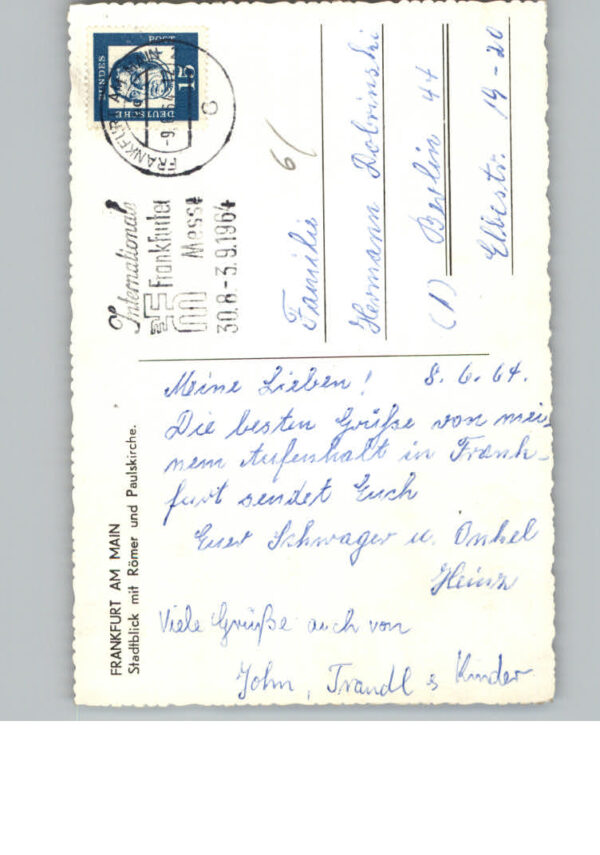 FRANKFURT AM MAIN
Stadtblick mit Römer und Paulskirche.
DEUTSCHE
BUNDES
POST
15
FRANKFURT AM MAIN
-9.
c
Internationale
Frankfurter
Messe
30.8-3.9.1964
6/
Familie
Hermann Dobrinski
(1) Berlin 44
Elbestr. 19-20
Meine Lieben! 8.6.64.
Die besten Grüße von mei-
nem Aufenhalt in Frank-
furt sendet Euch
Euer Schwager u. Onkel
Heinz
Viele Grüße auch von
John, Traudl & Kinder